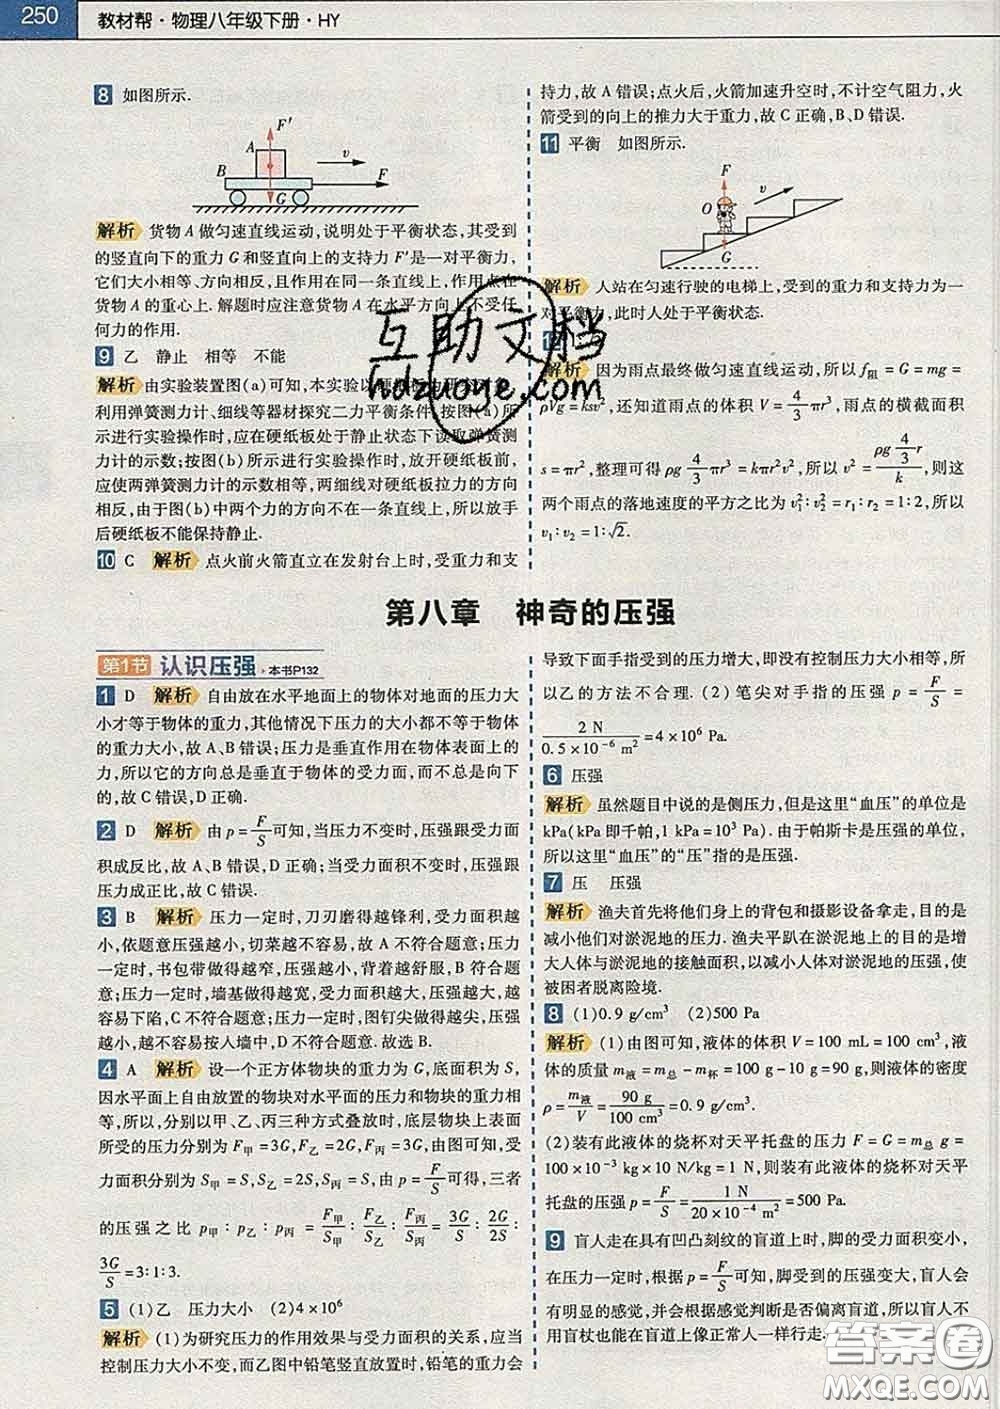 250 教材帮·物理八年级下册·HY
8 如图所示.
F'
A
v
B
F
G
解析 货物A做匀速直线运动,说明处于平衡状态,其受到
的竖直向下的重力G和竖直向上的支持力F'是一对平衡力,
它们大小相等、方向相反,且作用在同一条直线上,作用点在
货物A的重心上.解题时应注意货物A在水平方向上不受任
何力的作用.
9 乙 静止 相等 不能
解析 由实验装置图(a)可知,本实验以硬纸板为研究对象,
利用弹簧测力计、细线等器材探究二力平衡条件.按图(a)所
示进行实验操作时,应在硬纸板处于静止状态下读取弹簧测
力计的示数;按图(b)所示进行实验操作时,放开硬纸板前,
应使两弹簧测力计的示数相等,两细线对硬纸板拉力的方向
相反,由于图(b)中两个力的方向不在一条直线上,所以放手
后硬纸板不能保持静止.
10 C 解析 点火前火箭直立在发射台上时,受重力和支
持力,故A错误;点火后,火箭加速升空时,不计空气阻力,火
箭受到的向上的推力大于重力,故C正确,B、D错误.
11 平衡 如图所示.
F
v
O
G
解析 人站在匀速行驶的电梯上,受到的重力和支持力为一
对平衡力,此时人处于平衡状态.
解析 因为雨点最终做匀速直线运动,所以f阻=G=mg=
ρVg=ksv²,还知道雨点的体积V=4/3πr³,雨点的横截面积
s=πr²,整理可得ρg4/3πr³=kπr²v²,所以v²=ρg4/3r/k,则这
两个雨点的落地速度的平方之比为v₁²:v₂²=r₁:r₂=1:2,所以
v₁:v₂=1:√2.
互助文档
hdzuoye.com
第八章 神奇的压强
第1节 认识压强 ·本书P132
1 D 解析 自由放在水平地面上的物体对地面的压力大
小才等于物体的重力,其他情况下压力的大小都不等于物体
的重力大小,故A、B错误;压力是垂直作用在物体表面上的
力,所以它的方向总是垂直于物体的受力面,而不总是向下
的,故C错误,D正确.
2 D 解析 由p=F/S可知,当压力不变时,压强跟受力面
积成反比,故A、B错误,D正确;当受力面积不变时,压强跟
压力成正比,故C错误.
3 B 解析 压力一定时,刀刃磨得越锋利,受力面积越
小,依题意压强越小,切菜越不容易,故A不符合题意;压力
一定时,书包带做得越窄,压强越小,背着越舒服,B符合题
意;压力一定时,墙基做得越宽,受力面积越大,压强越大,越
容易下陷,C不符合题意;压力一定时,图钉尖做得越尖,压强
越小,越不容易按入墙中,D不符合题意.故选B.
4 A 解析 设一个正方体物块的重力为G,底面积为S,
因水平面上自由放置的物块对水平面的压力和物块的重力相
等,所以,分别以甲、乙、丙三种方式叠放时,底层物块上表面
所受的压力分别为F甲=3G,F乙=2G,F丙=3G,由图可知,受
力面积分别为S甲=S,S乙=2S,S丙=S,由p=F/S可得,三者
的压强之比p甲:p乙:p丙=F甲/S甲:F乙/S乙:F丙/S丙=3G/S:2G/2S:
3G/S=3:1:3.
5 (1)乙 压力大小 (2)4×10⁶
解析 (1)为研究压力的作用效果与受力面积的关系,应当
控制压力大小不变,而乙图中铅笔竖直放置时,铅笔的重力会
导致下面手指受到的压力增大,即没有控制压力大小相等,所
以乙的方法不合理.(2)笔尖对手指的压强p=F/S=
2 N/0.5×10⁻⁶ m²=4×10⁶ Pa.
6 压强
解析 虽然题目中说的是侧压力,但是这里“血压”的单位是
kPa(kPa即千帕,1 kPa=10³ Pa).由于帕斯卡是压强的单位,
所以这里“血压”的“压”指的是压强.
7 压 压强
解析 渔夫首先将他们身上的背包和摄影设备拿走,目的是
减小他们对淤泥地的压力.渔夫平趴在淤泥地上的目的是增
大人体与淤泥地的接触面积,以减小人体对淤泥地的压强,使
被困者脱离险境.
8 (1)0.9 g/cm³ (2)500 Pa
解析 (1)由图可知,液体的体积V=100 mL=100 cm³,液
体的质量m液=m总-m杯=100 g-10 g=90 g,则液体的密度
ρ=m液/V=90 g/100 cm³=0.9 g/cm³.
(2)装有此液体的烧杯对天平托盘的压力F=G=m总g=
100×10⁻³ kg×10 N/kg=1 N,则装有此液体的烧杯对天平
托盘的压强p=F/S=1 N/20×10⁻⁴ m²=500 Pa.
9 盲人走在具有凹凸刻纹的盲道上时,脚的受力面积变小,
在压力一定时,根据p=F/S可知,脚受到的压强变大,盲人会
有明显的感觉,并会根据感觉判断是否偏离盲道,所以盲人不
用盲杖也能在盲道上像正常人一样行走.
答案圈
MXQE.COM